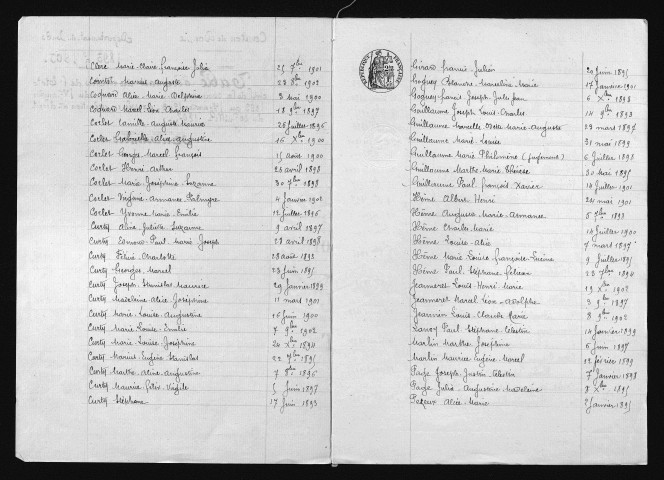 Clerc Marie-Claire-Françoise-Julia 25 7bre 1901
Comtet Marius-Auguste 23 8bre 1902
Coquard Alice-Marie-Delphine 3 mai 1900
Coquard Marcel-Léon-Charles 18 9bre 1897
Corlet Camille-Auguste-Maurice 26 juillet 1896
Corlet Gabrielle-Alice-Augustine 16 Xbre 1900
Corlet Georges-Marcel-François 15 août 1900
Corlet Henri-Arthur 26 avril 1898
Corlet Marie-Joséphine-Suzanne 30 7bre 1898
Corlet Virginie-Armance-Palmyre 4 Janvier 1902
Corlet Yvonne-Marie-Emilie 12 Juillet 1896
Curty Aline-Juliette-Suzanne 9 avril 1897
Curty Edmond-Paul-Marie-Joseph 23 avril 1898
Curty Félicie-Charlotte 28 août 1893
Curty Georges-Marcel 23 Juin 1895
Curty Joseph-Stanislas-Maurice 29 Janvier 1899
Curty Madeleine-Alice-Joséphine 11 mars 1901
Curty Marie-Louise-Augustine 16 Juin 1900
Curty Marie-Louise-Emilie 7 9bre 1902
Curty Marie-Louise-Joséphine 24 Xbre 1894
Curty Marius-Eugène-Stanislas 22 7bre 1895
Curty Marthe-Aline-Augustine 7 8bre 1896
Curty Maurice-Félix-Virgile 5 Juin 1897
Curty Stéphane 17 Juin 1893
RÉPUBLIQUE FRANÇAISE
Girard Francis-Julien 20 Juin 1895
Joseph-Jules-Jean 6 Xbre 1898
Guillaume Joseph-Louis-Charles 14 9bre 1893
Guillaume Marcelle-Marie-Auguste 29 mars 1897
Guillaume Marie-Louise 31 mai 1899
Guillaume Marie-Philomène 6 Juillet 1898
Guillaume Marthe-Marie-Thérèse 30 mai 1895
Guillaume Paul-François-Xavier 14 Juillet 1901
Hême Albert-Henri 24 mai 1901
Hême Augusta-Marie-Armance 5 7bre 1893
Hême Charles-Marie 14 Juillet 1900
Hême Louise-Alice 7 mars 1897
Hême Marie-Louise-Françoise 9 Juillet 1895
Hême Paul-Stéphane 23 7bre 1894
Jeannerot Louis-Henri-Marie 19 Xbre 1902
Jeannerot Marcel-Léon-Adolphe 3 9bre 1897
Jeannin Louis-Claude-Marie 8 9bre 1902
Paul-Stéphane-Célestin 14 Janvier 1899
Martin Marthe-Joséphine 6 Juin 1897
Martin Maurice-Eugène-Marcel 22 février 1899
Page Joseph-Justin-Célestin 7 Janvier 1898
Page Julia-Augustine-Madeleine 8 Xbre 1895
Pezeux Alice-Marie 2 Janvier 1895